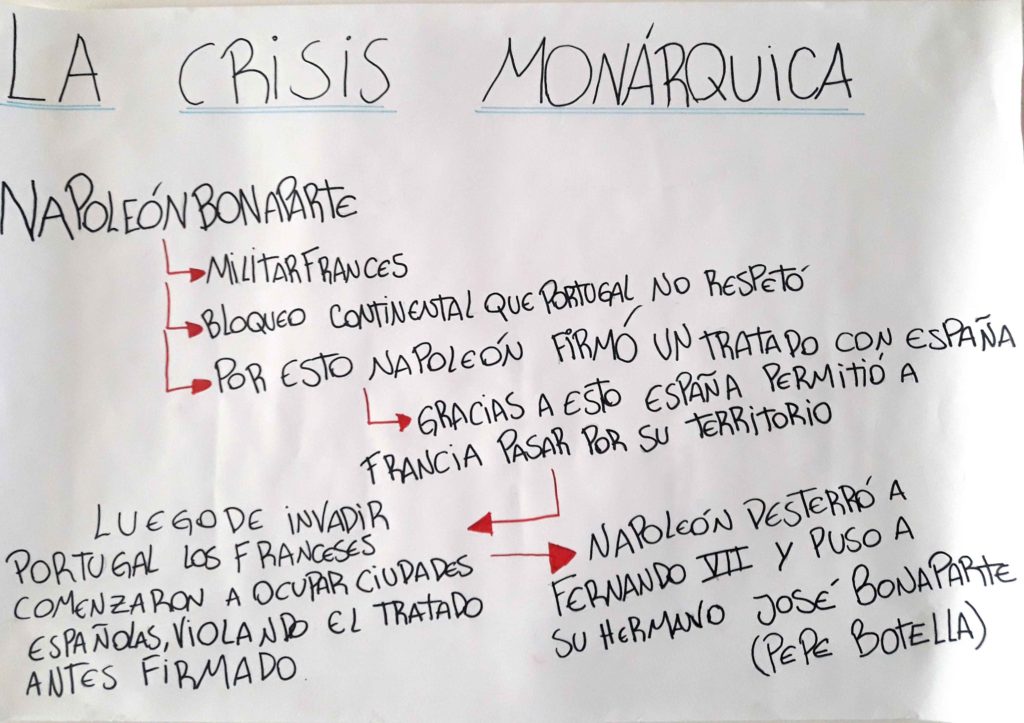 LA CRISIS MONÁRQUICA
NAPOLEÓN BONAPARTE
MILITAR FRANCES
BLOQUEO CONTINENTAL QUE PORTUGAL NO RESPETÓ
POR ESTO NAPOLEÓN FIRMÓ UN TRATADO CON ESPAÑA
GRACIAS A ESTO ESPAÑA PERMITIÓ A
FRANCIA PASAR POR SU TERRITORIO
LUEGO DE INVADIR
PORTUGAL LOS FRANCESES
COMENZARON A OCUPAR CIUDADES
ESPAÑOLAS, VIOLANDO EL TRATADO
ANTES FIRMADO.
NAPOLEÓN DESTERRÓ A
FERNANDO VII Y PUSO A
SU HERMANO JOSÉ BONAPARTE
(PEPE BOTELLA)